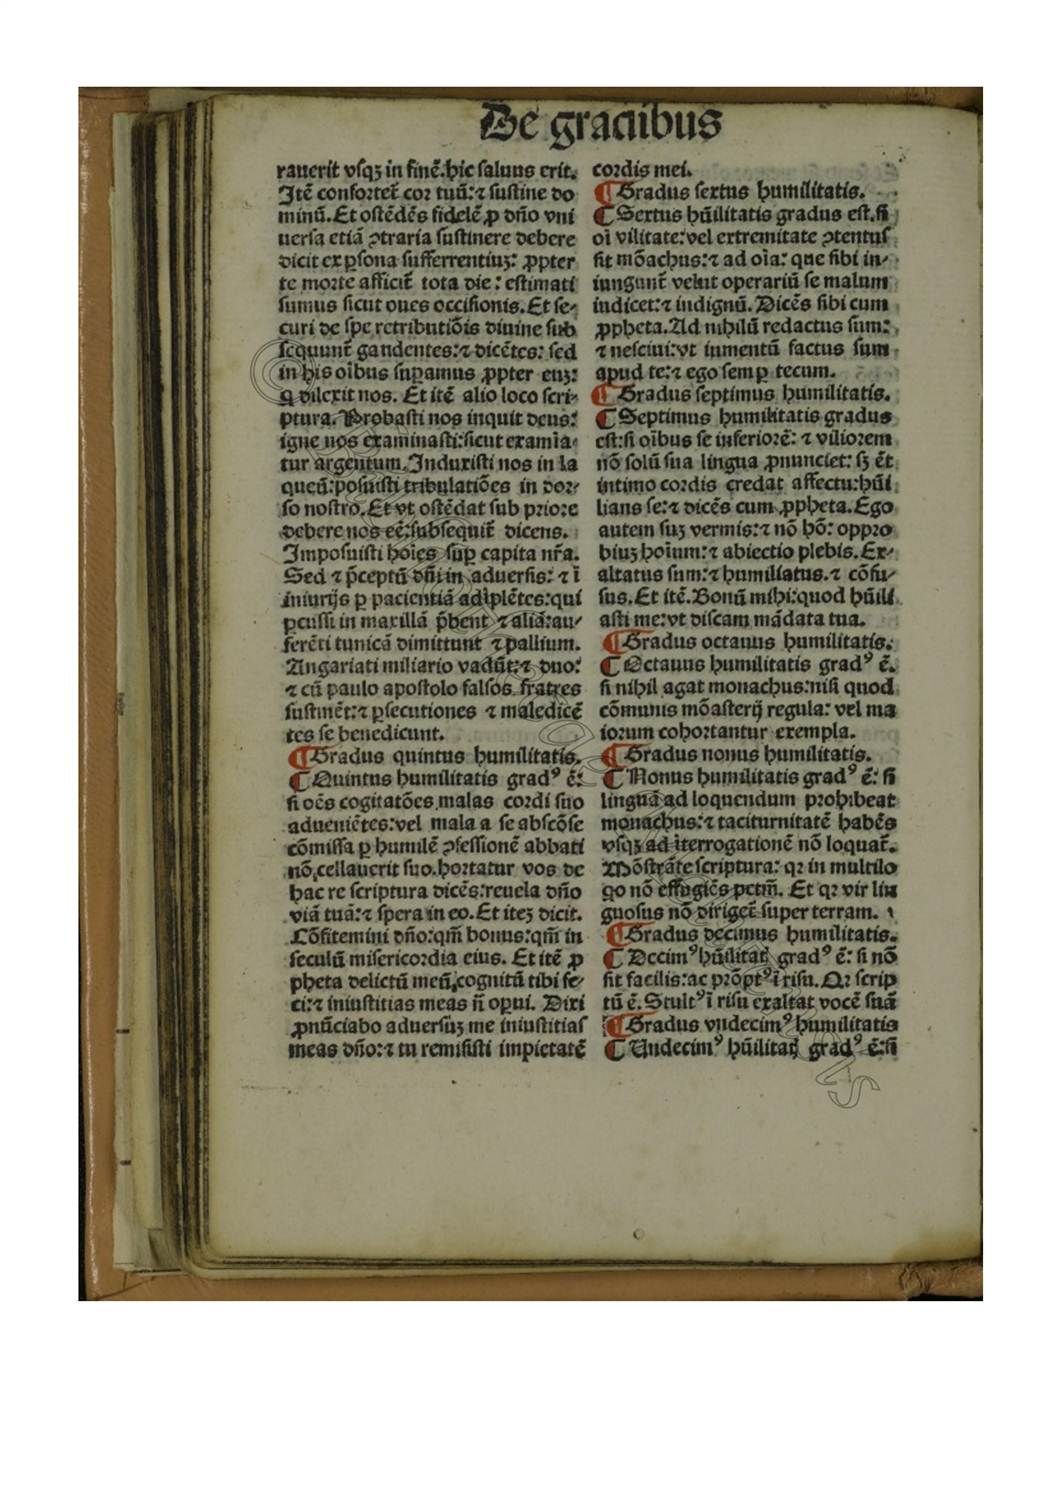 De graciibus
rauerit vsqꝫ in finē.hic saluus erit.
Itē confortet̄ cor tuū:⁊ sustine do
minū. Et ostēdēs fidelē ꝓ dño vni
uersa etiā ꝯtraria sustinere debere
dicit ex ꝑsona sufferrentiuꝫ: ꝓpter
te morte afficit̄ tota die: estimati
sumus sicut oues occisionis. Et se⸗
curi de spe retributiōis diuine sub
sequunt̄ gaudentes:⁊ dicētes: sed
in his oībus suꝑamus ꝓpter euꝫ:
q dilexit nos. Et itē alio loco scri⸗
ptura. Probasti nos inquit deus:
igne nos examinasti:sicut examīa⸗
tur argentum. Induxisti nos in la
queū:posuisti tribulatiōes in dor⸗
so nostro. Et vt ostēdat sub priore
debere nos eē:subsequit̄ dicens.
Imposuisti hoīes suꝑ capita nr̄a.
Sed ⁊ p̄ceptū dñi in aduersis: ⁊ ī
iniurijs ꝑ pacientiā adīplētes:qui
ꝑcussi in maxillā p̄bent ⁊ aliā:au⸗
ferēti tunicā dimittunt ⁊ pallium.
Angariati miliario vadūt:⁊ duo:
⁊ cū paulo apostolo falsos fratres
sustinēt:⁊ ꝑsecutiones ⁊ maledicē
tes se benedicunt.
¶ Gradus quintus humilitatis.
¶ Quintus humilitatis gradꝰ ē:
si oēs cogitatōes malas cordi suo
adueniētes:vel mala a se abscōse
cōmissa ꝑ humilē ꝯfessionē abbati
nō cellauerit suo.hortatur vos de
hac re scriptura dicēs:reuela dño
viā tuā:⁊ spera in eo. Et iteꝫ dicit.
Cōfitemini dño:qm̄ bonus:qm̄ in
seculū misericordia eius. Et itē ꝓ
pheta delictū meū cognitū tibi fe⸗
ci:⁊ iniustitias meas ñ oꝑui. Dixi
ꝓnūciabo aduersūꝫ me iniustitias
meas dño:⁊ tu remisisti impietatē
cordis mei.
¶ Gradus sextus humilitatis.
¶ Sextus hūilitatis gradus est.si
oī vilitate:vel extremitate ꝯtentus
sit mōachus:⁊ ad oīa: que sibi in⸗
iungunt̄ velut operariū se malum
iudicet:⁊ indignū. Dicēs sibi cum
ꝓpheta. Ad nihilū redactus sum:
⁊ nesciui:vt iumentū factus sum
apud te:⁊ ego semꝑ tecum.
¶ Gradus septimus humilitatis.
¶ Septimus humilitatis gradus
est:si oībus se inferiorē: ⁊ viliorem
nō solū sua lingua ꝓnunciet: sꝫ ēt
intimo cordis credat affectu:hūi
lians se:⁊ dicēs cum ꝓpheta. Ego
autem suꝫ vermis:⁊ nō hō: oppro
biuꝫ hoīum:⁊ abiectio plebis. Ex⸗
altatus sum:⁊ humiliatus.⁊ cōfu⸗
sus. Et itē. Bonū mihi:quod hūili
asti me:vt discam mādata tua.
¶ Gradus octauus humilitatis.
¶ Octauus humilitatis gradꝰ ē.
si nihil agat monachus:nisi quod
cōmunis mōasterij regula: vel ma
iorum cohortantur exempla.
¶ Gradus nonus humilitatis.
¶ Nonus humilitatis gradꝰ ē: si
linguā ad loquendum prohibeat
monachus:⁊ taciturnitatē habēs
vsqꝫ ad īterrogationē nō loquat̄.
Mōstrāte scriptura: qꝛ in multilo
qo nō effugiēs pctm̄. Et qꝛ vir lin
guosus nō diriget̄ super terram.
¶ Gradus decimus humilitatis.
¶ Decimꝰ hūilitatꝭ gradꝰ ē: si nō
sit facilis:ac prōptꝰ ī risu. Qꝛ scrip
tū ē. Stultꝰ ī risu exaltat vocē suā
¶ Gradus vndecimꝰ humilitatis
¶ Undecimꝰ hūilitatꝭ gradꝰ ē:si